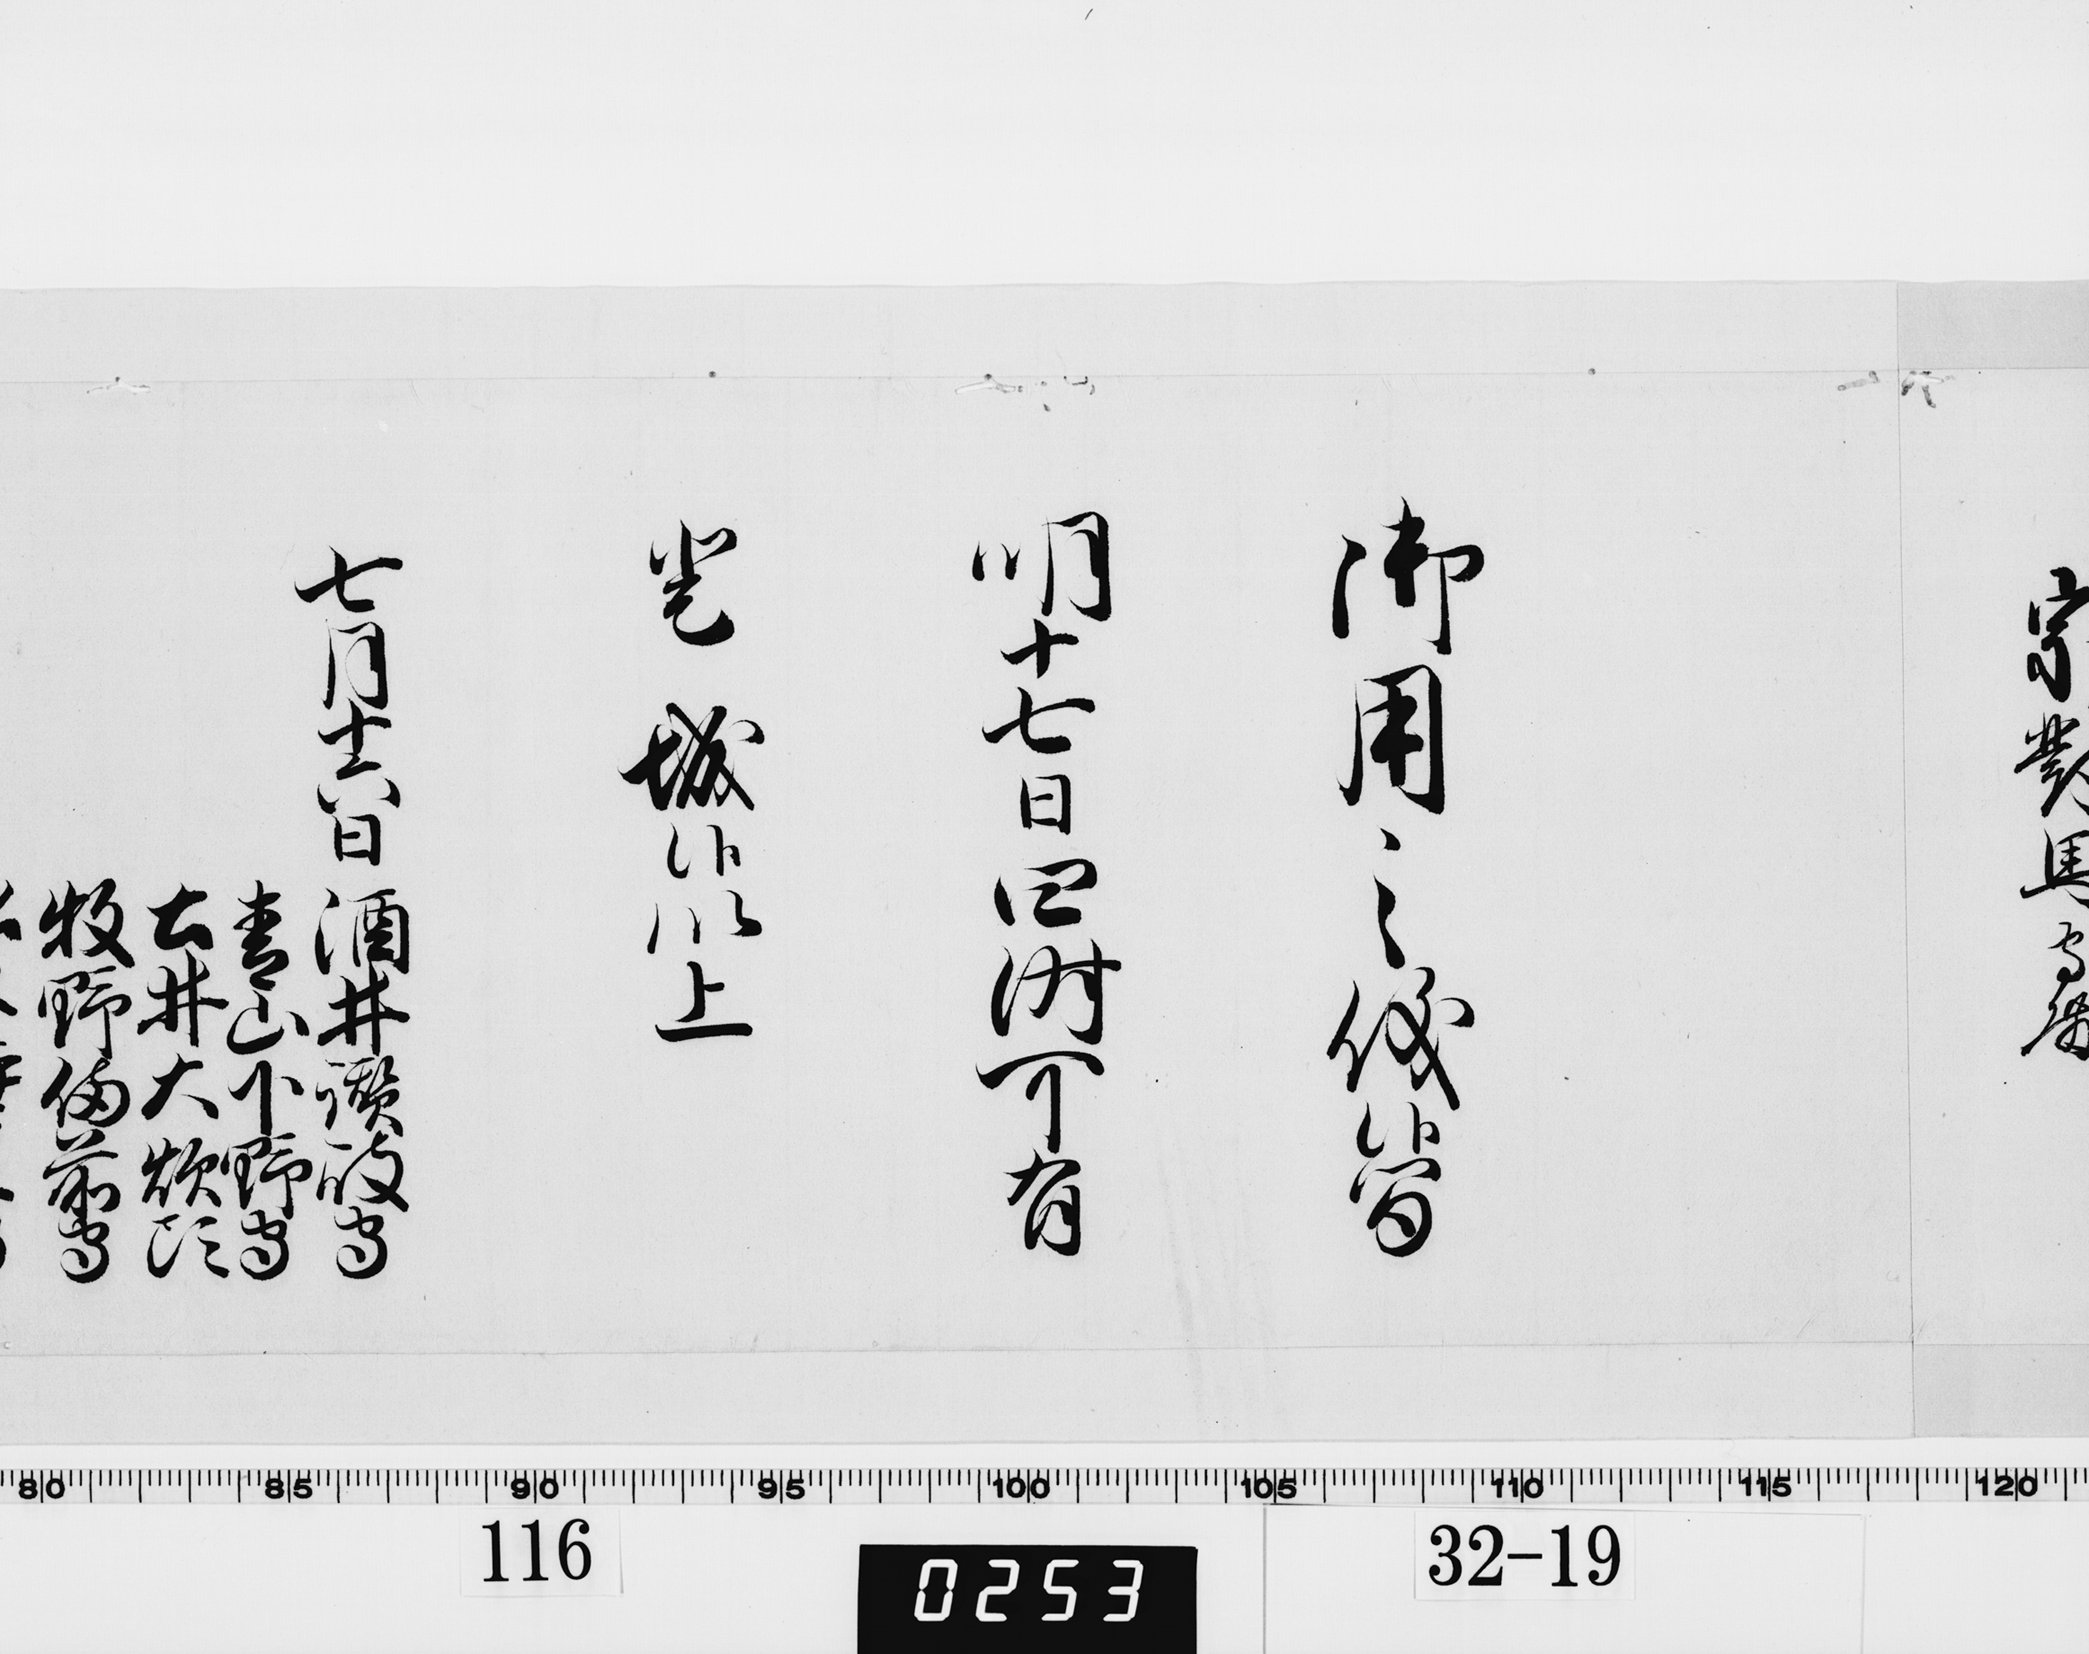 宗對馬守殿
御用之儀候間
明十七日四時可有
登 城候以上
七月十六日 酒井讃岐守
青山下野守
土井大炊頭
牧野備前守
80 85 90 95 100 105 110 115 120
116
0253
32-19